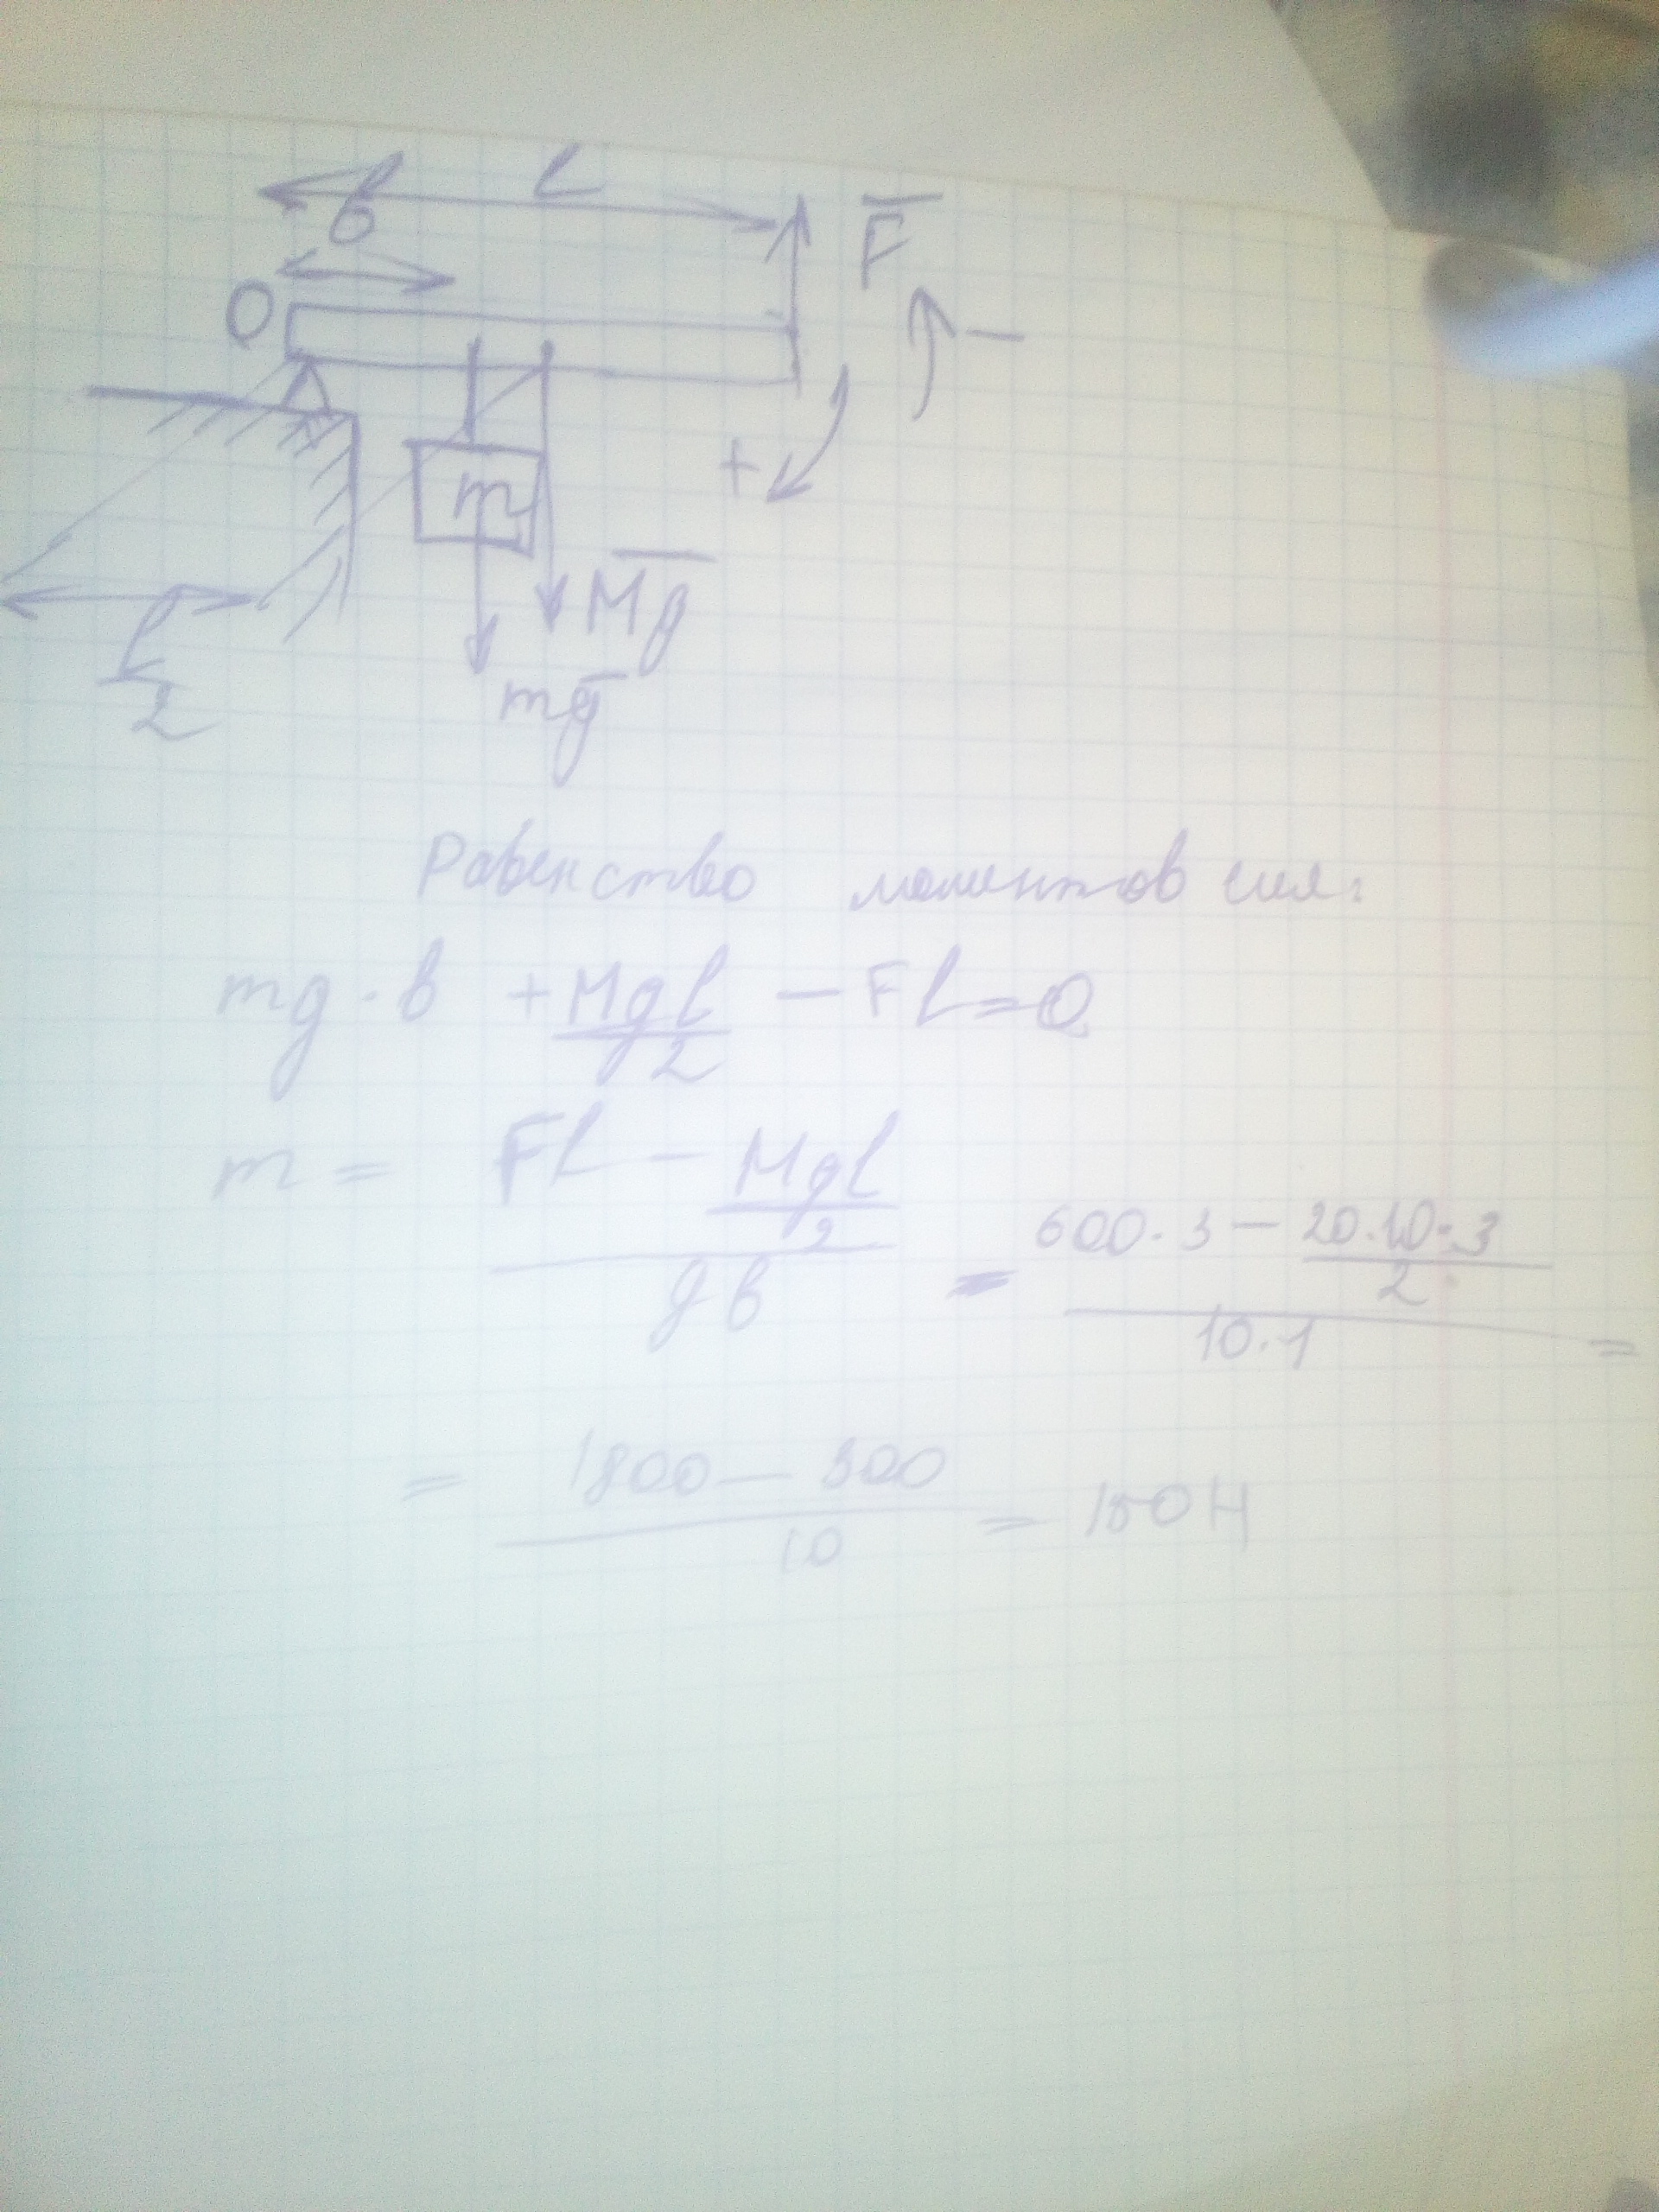 L
в
F
O
−
+
m
Mg
L
2
mg
Равенство моментов сил:
mg·в + MgL/2 − FL = 0
m = (FL − MgL/2) / gв = (600·3 − 20·10·3/2) / 10·1 =
= (1800 − 300) / 10 = 150 Н